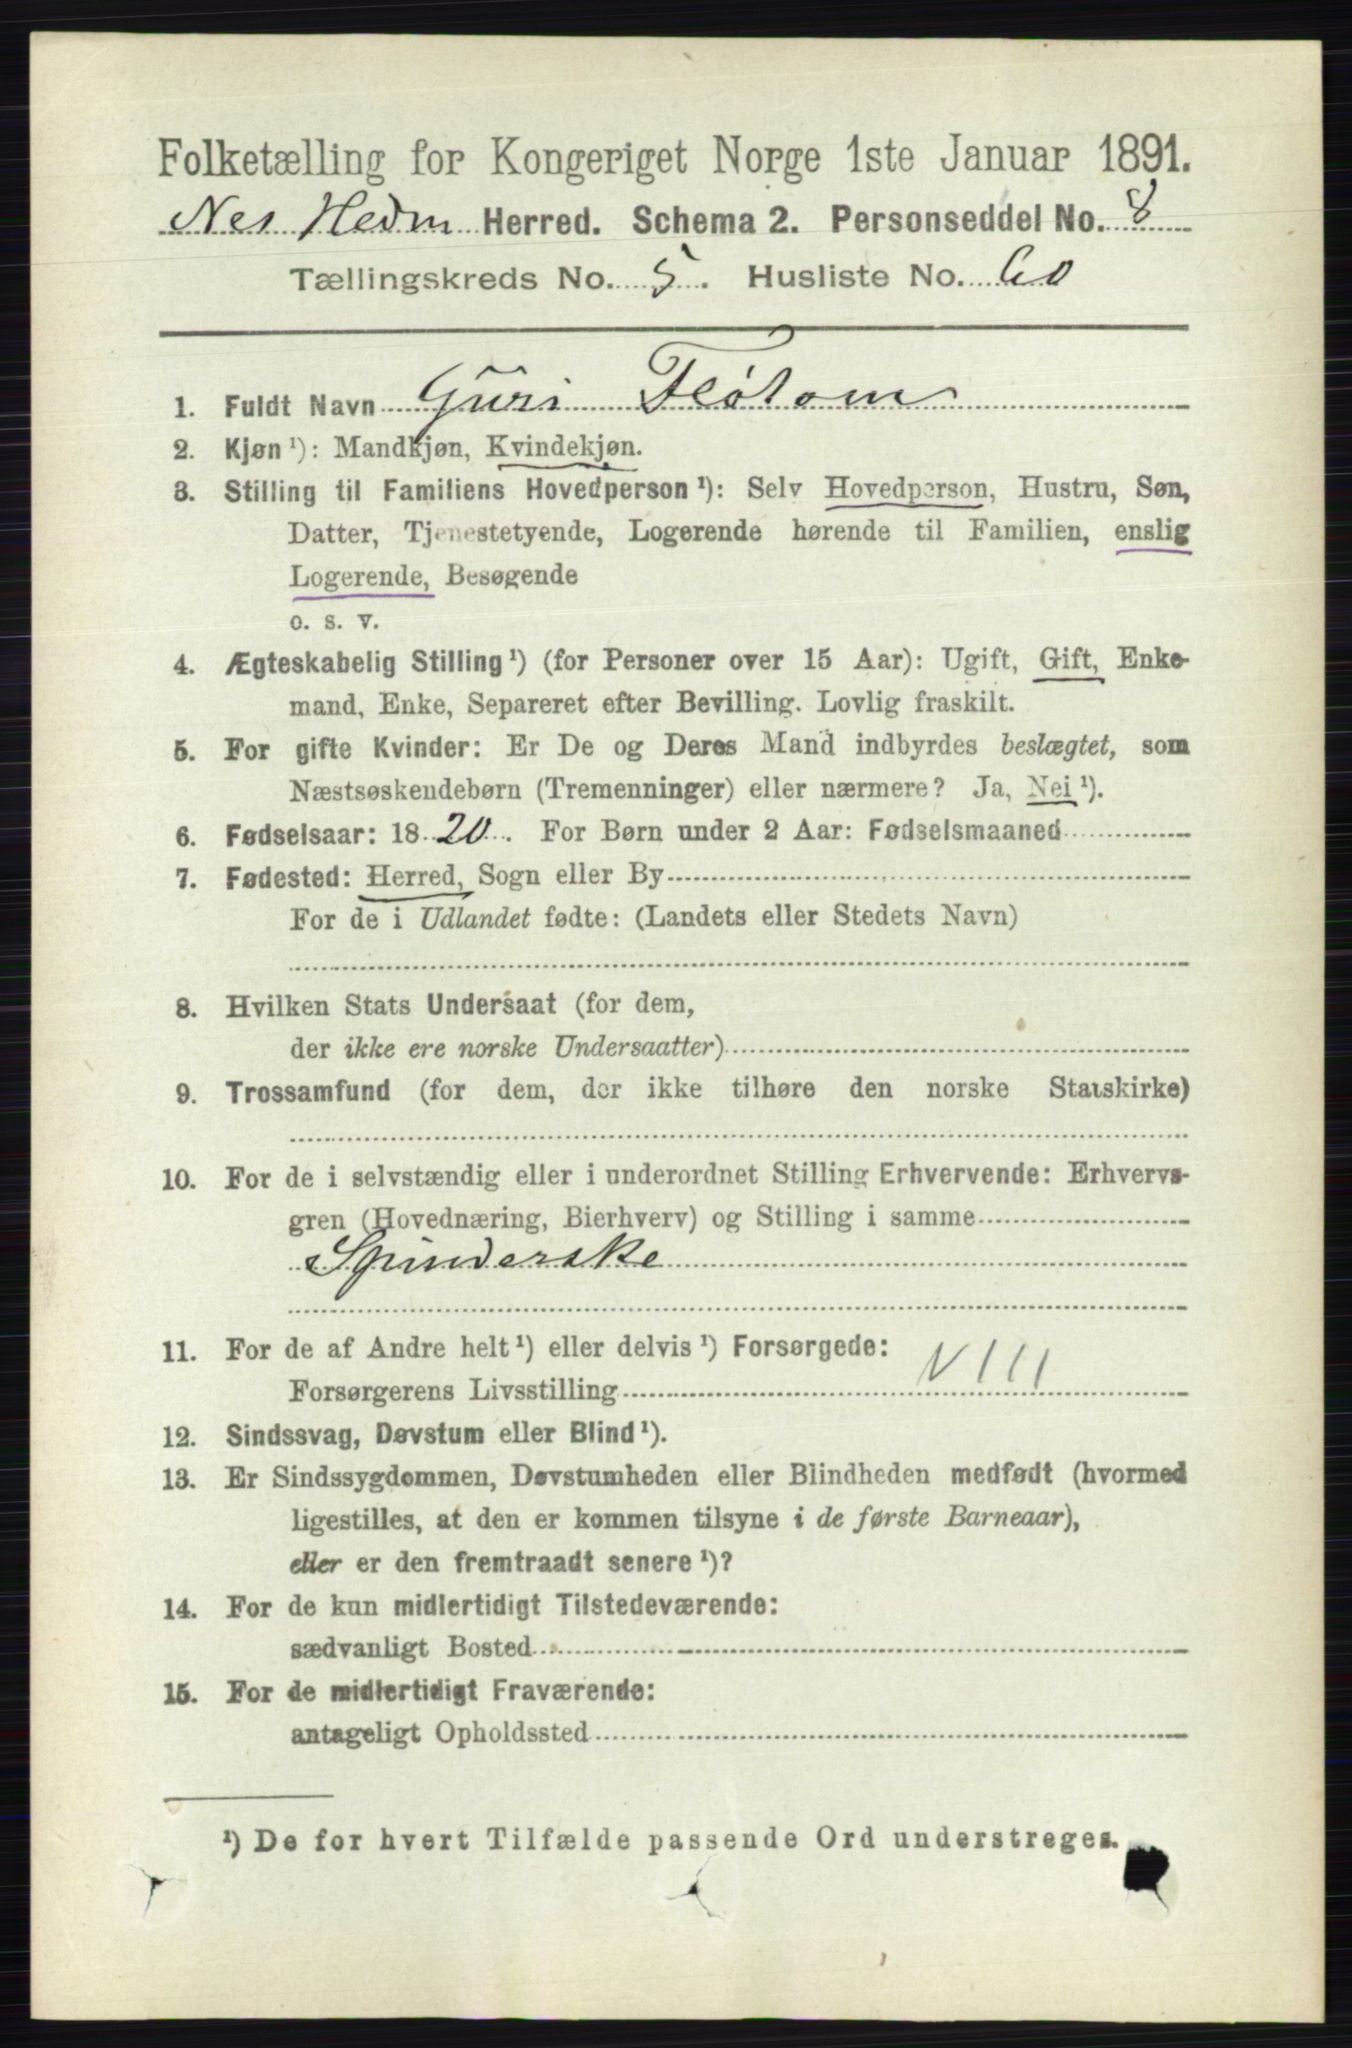 Folketælling for Kongeriget Norge 1ste Januar 1891.
Nes Hedm Herred. Schema 2. Personseddel No. 8
Tællingskreds No. 5. Husliste No. 60
1. Fuldt Navn Guri Fløtom
2. Kjøn ¹): Mandkjøn, Kvindekjøn.
3. Stilling til Familiens Hovedperson ¹): Selv Hovedperson, Hustru, Søn,
Datter, Tjenestetyende, Logerende hørende til Familien, enslig
Logerende, Besøgende
o. s. v.
4. Ægteskabelig Stilling ¹) (for Personer over 15 Aar): Ugift, Gift, Enke-
mand, Enke, Separeret efter Bevilling. Lovlig fraskilt.
5. For gifte Kvinder: Er De og Deres Mand indbyrdes beslægtet, som
Næstsøskendebørn (Tremenninger) eller nærmere? Ja, Nei ¹).
6. Fødselsaar: 1820. For Børn under 2 Aar: Fødselsmaaned
7. Fødested: Herred, Sogn eller By
For de i Udlandet fødte: (Landets eller Stedets Navn)
8. Hvilken Stats Undersaat (for dem,
der ikke ere norske Undersaatter)
9. Trossamfund (for dem, der ikke tilhøre den norske Statskirke)
10. For de i selvstændig eller i underordnet Stilling Erhvervende: Erhvervs-
gren (Hovednæring, Bierhverv) og Stilling i samme
Spinderske
11. For de af Andre helt ¹) eller delvis ¹) Forsørgede:
Forsørgerens Livsstilling VIII
12. Sindssvag, Døvstum eller Blind ¹).
13. Er Sindssygdommen, Døvstumheden eller Blindheden medfødt (hvormed
ligestilles, at den er kommen tilsyne i de første Barneaar),
eller er den fremtraadt senere ¹)?
14. For de kun midlertidigt Tilstedeværende:
sædvanligt Bosted
15. For de midlertidigt Fraværende:
antageligt Opholdssted
¹) De for hvert Tilfælde passende Ord understreges.